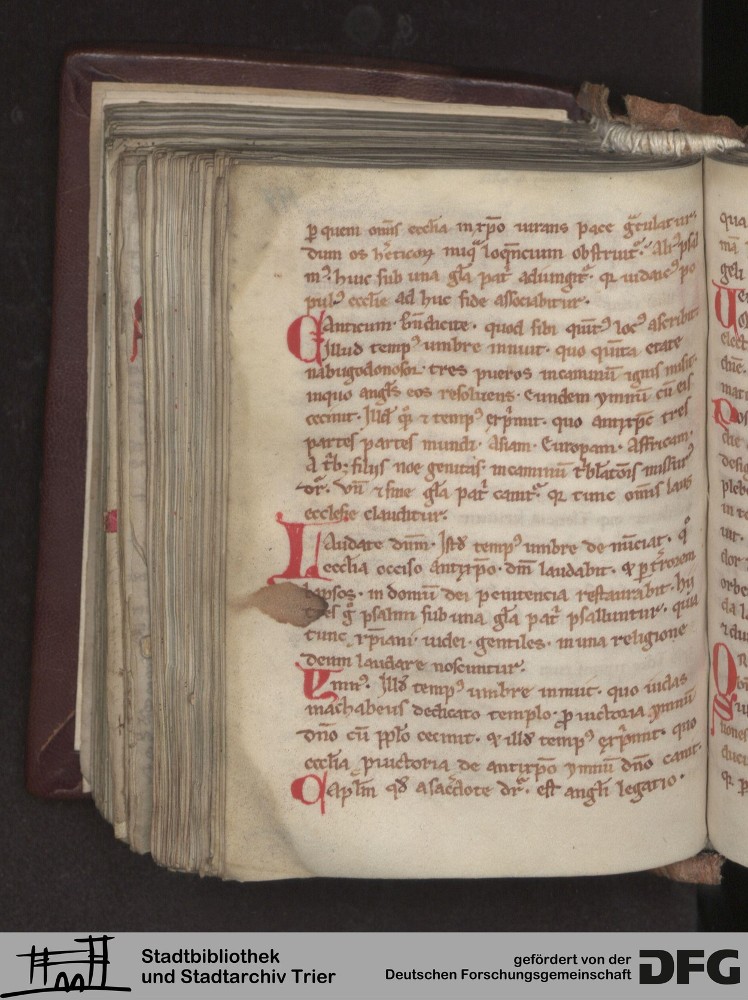 ꝑ quem om̅is ecclia in xp̅o iurans pace gͣtulatur.
dum os h̅eticoꝝ iniq̅ loq̅ncium obstruit᷑. Aliꝰ psal
mꝰ. huic sub una gl̅a pat̅ adiungit᷑. qꝛ iudaicꝰ po
pulꝰ ecclie ad huc fide associabitur.
Canticum. bn̅dicite. quod sibi qui̅tꝰ locꝰ ascribit
illud tempꝰ umbre innuit. quo quinta etate
nabugodonosor. tres pueros in caminu̅ ignis misit.
inquo angl̅s eos resoluens. eundem ymnu̅ cu̅ eis
cecinit. Ill̅d qͦꝫ ⁊ tempꝰ exp̅mit. quo antixp̅c tres
partes partes mundi. Asiam. Europam. Affricam.
A trib; filijs noe genitas. incaminu̅ tͥbl̅atōis missurꝰ
dr̅. Vn̅ ⁊ sine gl̅a pat̅ canit᷑. qꝛ tunc om̅is laus
ecclesie clauditur.
Laudate dn̅m. Istd̅ tempꝰ umbre de nu̅ciat. qͦ
ecclia occiso antixp̅o. dn̅m laudabit. ⁊ ꝑ errorem
lapsos. in domu̅ dei penitencia restaurabit. hij
tres gͦ psalmi sub una gl̅a pat̅ psalluntur. quia
tunc xp̅iani. iudei. gentiles. in una religione
deum laudare noscuntur.
Ymnꝰ. Ill̅d tempꝰ umbre innuit. quo iudas
machabeus dedicato templo. ꝓ uictoria ymnu̅
dn̅o cu̅ pp̅lo cecinit. ⁊ ill̅d tempꝰ exp̅mit. quo
ecclia ꝓ uictoria de antixp̅o ymnu̅ dn̅o canit.
Capl̅m qd̅ a sac̅dote dr̅. est angl̅i legatio.
Stadtbibliothek
und Stadtarchiv Trier
gefördert von der
Deutschen Forschungsgemeinschaft
DFG